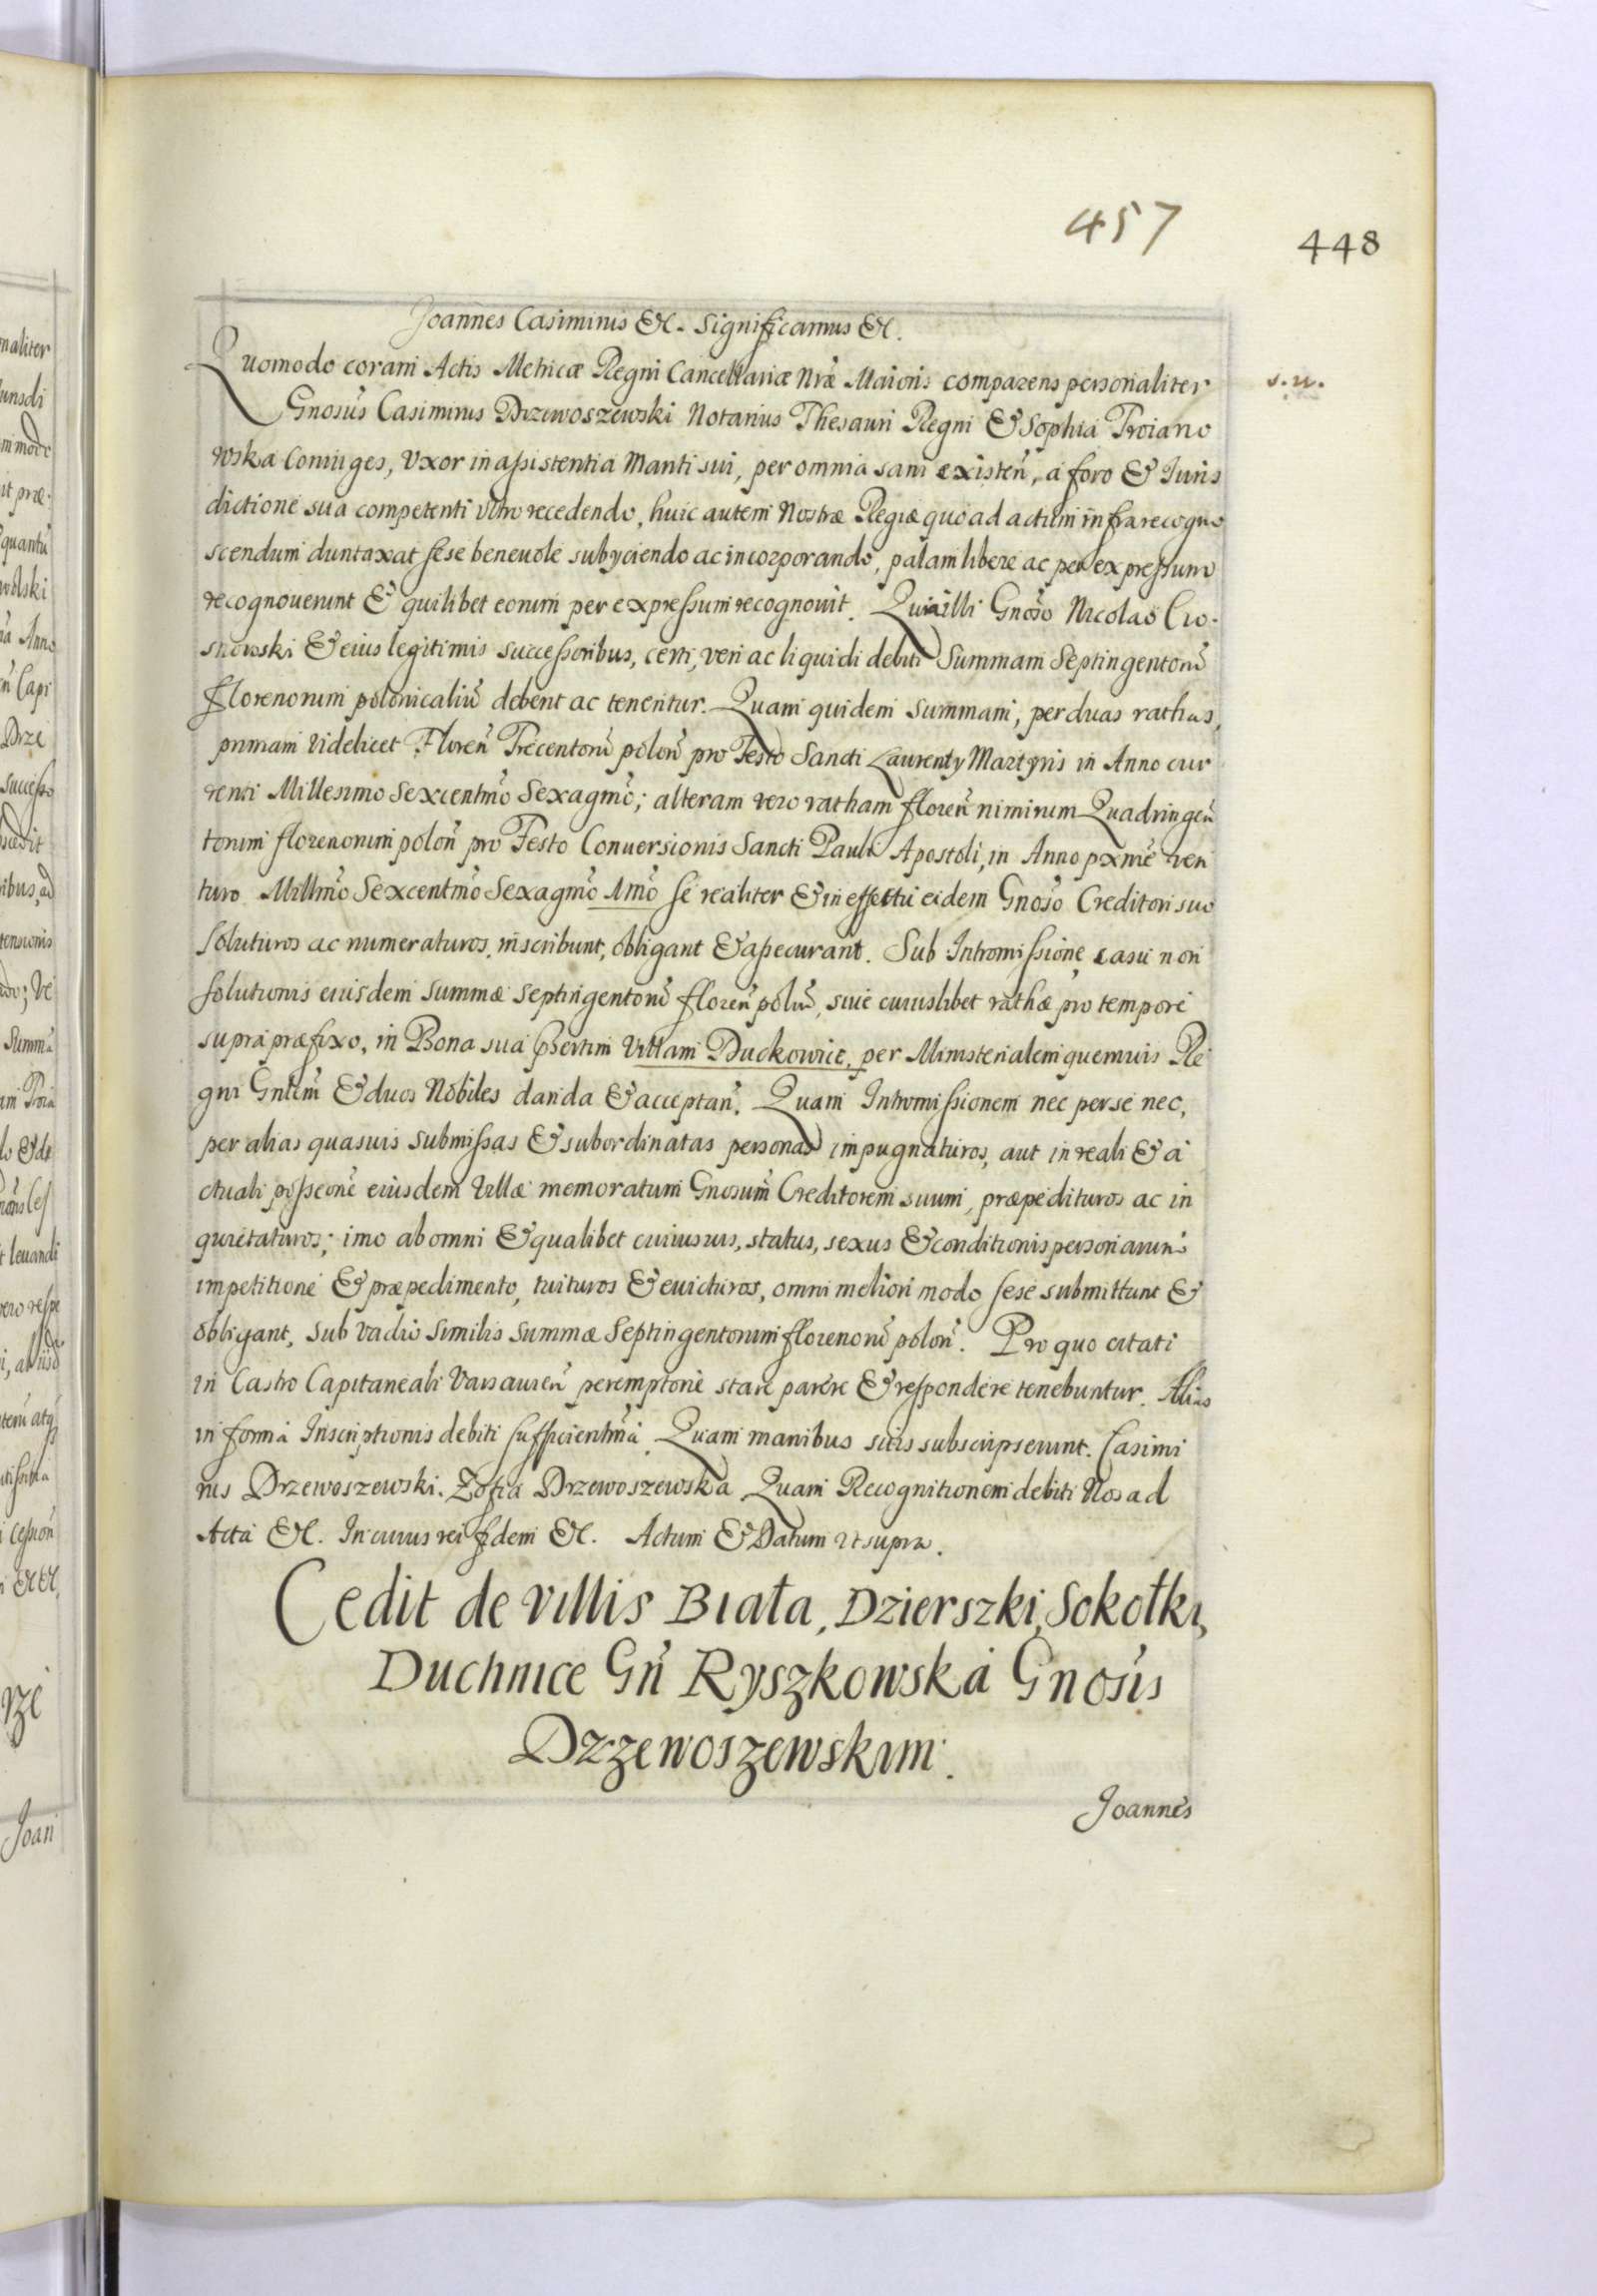 457
448
Joannes Casimirus &c. Significamus &c.
Quomodo coram Actis Metricæ Regni Cancellariæ Nræ Maioris comparens personaliter
s.n.
Gnosus Casimirus Drzewoszewski Notarius Thesauri Regni & Sophia Troiano
wska Coniuges, Uxor in aßistentia Mariti sui, per omnia sani existeñ, a foro & Juris
dictione sua competenti ultro recedendo, huic autem Nostræ Regiæ quo ad actum infra recogno
scendum duntaxat sese beneuole subyciendo ac incorporando, palam libere ac per expreßum
recognouerunt & quilibet eorum per expreßum recognouit. Quia illi Gnoso Nicolao Cio-
snowski & eius legitimis succeßoribus, certi, veri ac liquidi debiti Summam Septingentorũ
florenorum polonicaliũ debent ac tenentur. Quam quidem summam, per duas rathas,
primam videlicet Floreñ Trecentorũ poloñ pro Festo Sancti Laurenty Martyris in Anno cur
renti Millesimo Sexcentmo Sexagmo; alteram vero ratham floreñ nimirum Quadringeñ
torum florenorum poloñ pro Festo Conuersionis Sancti Pauli Apostoli, in Anno pxme ven
turo Millmo Sexcentmo Sexagmo 1mo se realiter & in effectu eidem Gnoso Creditori suo
soluturos ac numeraturos, inscribunt, obligant & aßecurant. Sub Intromißione, casu non
solutionis eiusdem summæ septingentorũ floreñ polñ, siue cuiuslibet rathæ pro tempore
supra præfixo, in Bona sua psertim Villam Duckowice, per Ministerialem quemuis Re
gni Gnlem & duos Nobiles danda & acceptañ. Quam Intromißionem nec per se nec,
per alias quasuis submißas & subordinatas personas impugnaturos, aut in reali & a
ctuali poßeone eiusdem Villæ memoratum Gnosum Creditorem suum, præpedituros ac in
quietaturos; imo ab omni & qualibet cuiusuis, status, sexus & conditionis personarum
impetitione & præpedimento, tuituros & euicturos, omni meliori modo sese submittunt &
obligant, sub vadio similis summæ Septingentorum florenorũ poloñ. Pro quo citati
in Castro Capitaneali Varsauieñ peremptorie stare parere & respondere tenebuntur. Alias
in forma Inscriptionis debiti sufficientma. Quam manibus suis subscripserunt. Casimi
rus Drzewoszewski. Zofia Drzewoszewska Quam Recognitionem debiti Nos ad
Acta &c. In cuius rei fidem &c. Actum & Datum ut supra.
Cedit de villis Biała, Dzierszki, Sokołki,
Duchnice Gñ Ryszkowska Gnosis
Drzewoszewskim.
Joannes